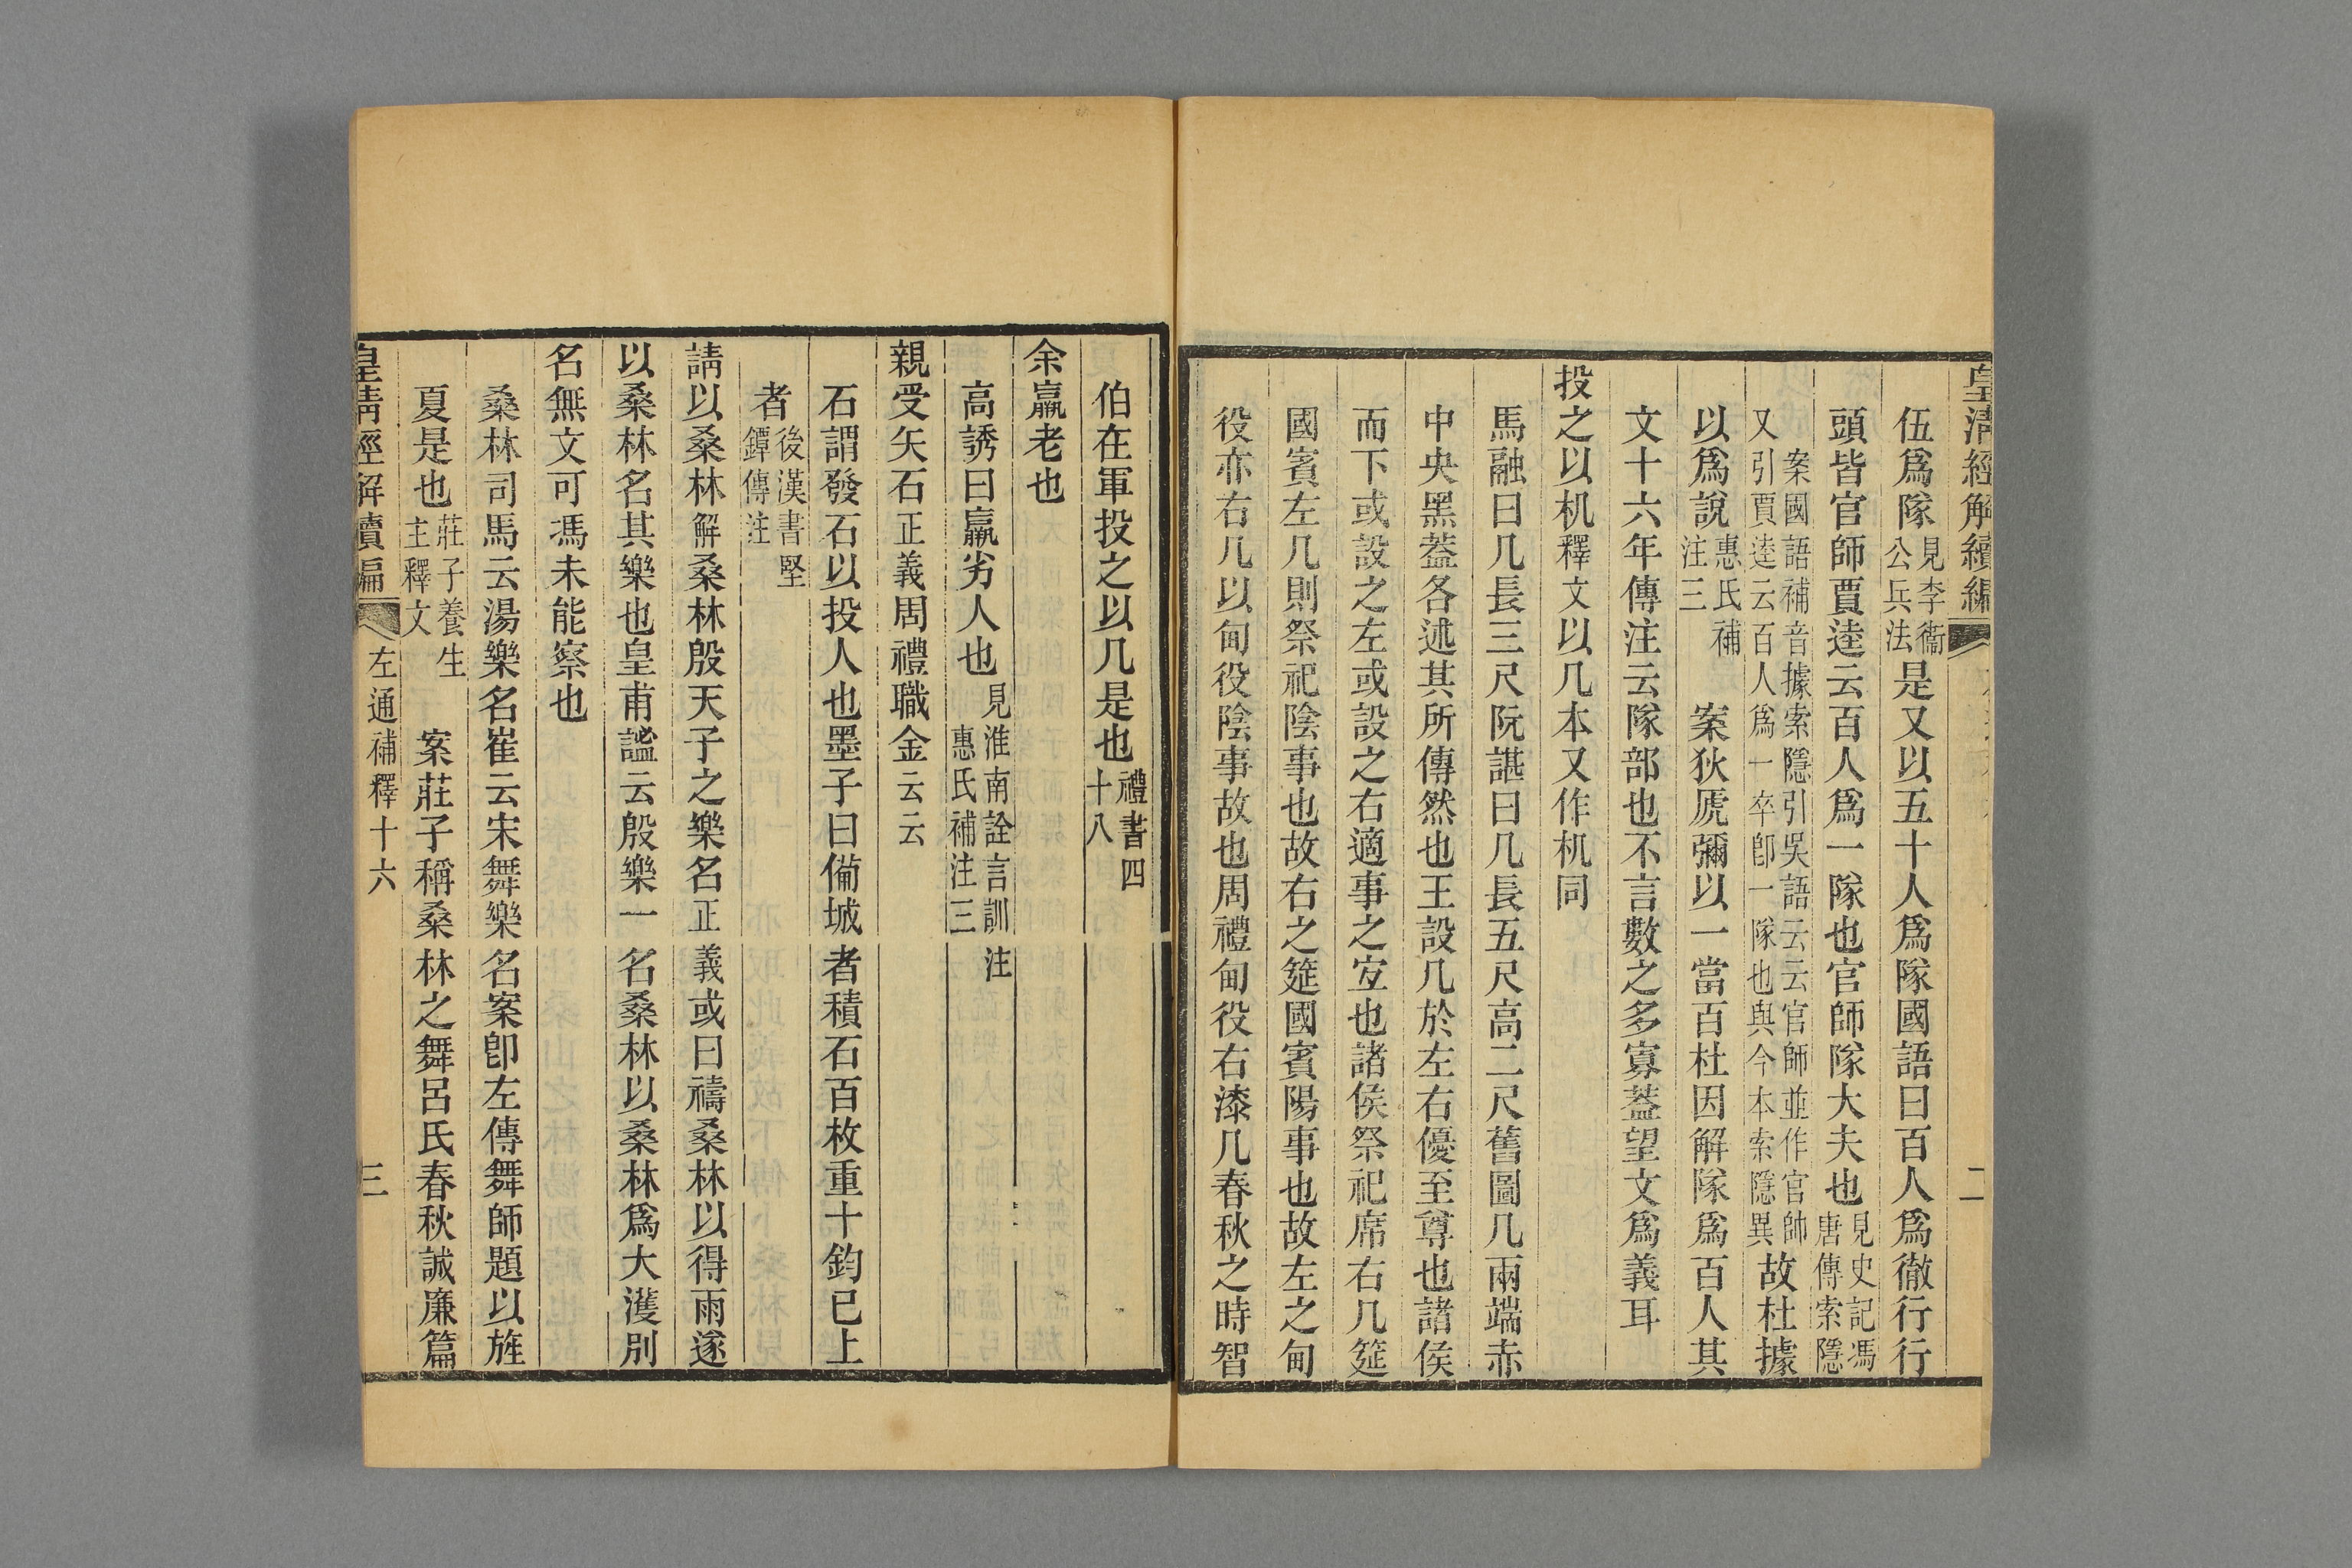 皇清經解續編
二
伍爲隊見李衞公兵法是又以五十人爲隊國語曰百人爲徹行行
頭皆官師賈逵云百人爲一隊也官師隊大夫也見史記馮唐傳索隱
案國語補音據索隱引吳語云云官師並作官帥又引賈逵云百人爲一卒卽一隊也與今本索隱異故杜據
以爲說惠氏補注三案狄虒彌以一當百杜因解隊爲百人其
文十六年傳注云隊部也不言數之多寡蓋望文爲義耳
投之以机釋文以几本又作机同
馬融曰几長三尺阮諶曰几長五尺高二尺舊圖几兩端赤
中央黑蓋各述其所傳然也王設几於左右優至尊也諸侯
而下或設之左或設之右適事之宐也諸侯祭祀席右几筵
國賓左几則祭祀陰事也故右之筵國賓陽事也故左之甸
役亦右几以甸役陰事故也周禮甸役右漆几春秋之時智
伯在軍投之以几是也禮書四十八
余羸老也
高誘曰羸劣人也見淮南詮言訓注惠氏補注三
親受矢石正義周禮職金云云
石謂發石以投人也墨子曰僃城者積石百枚重十鈞已上
者後漢書堅鐔傳注
請以桑林解桑林殷天子之樂名正義或曰禱桑林以得雨遂
以桑林名其樂也皇甫謐云殷樂一名桑林以桑林爲大濩別
名無文可馮未能察也
桑林司馬云湯樂名崔云宋舞樂名案卽左傳舞師題以旌
夏是也莊子養生主釋文案莊子稱桑林之舞呂氏春秋誠廉篇
皇清經解續編
左通補釋十六
三